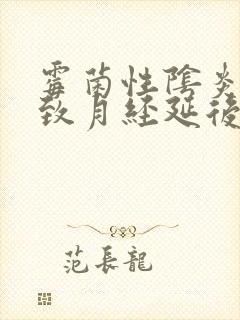 霉菌性陰炎
致月經延後
范長龍